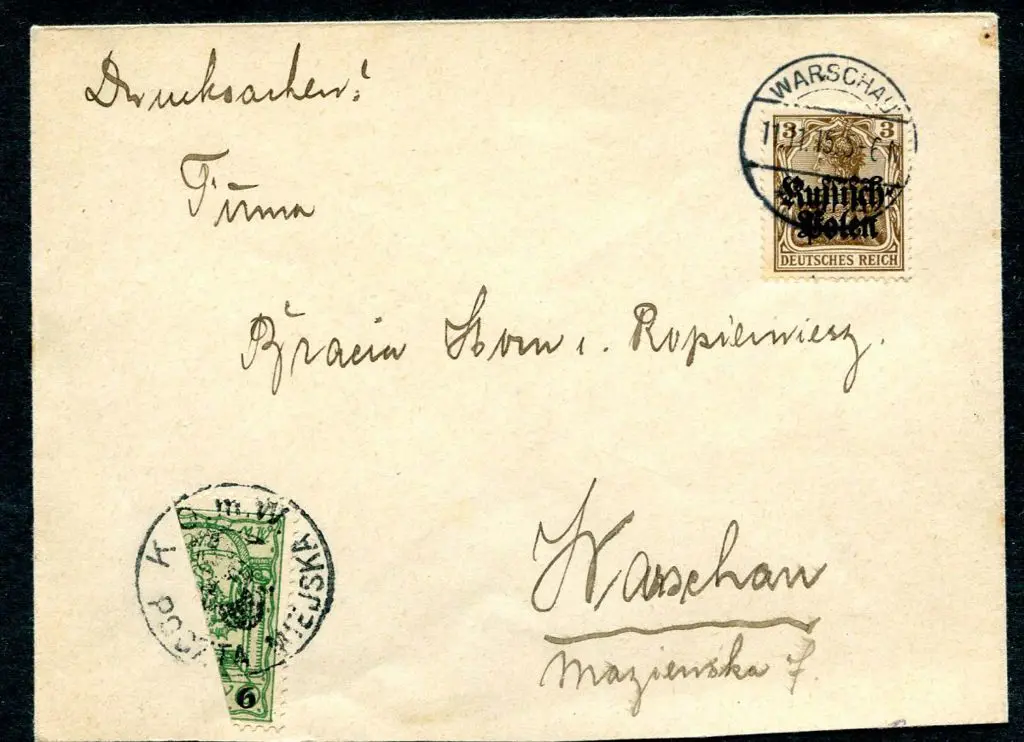 Drucksachen!
WARSCHAU
11.11.15.5-6
3 3
Russisch-
Polen
DEUTSCHES REICH
Firma
Bracia Horn i. Ropilewiesz.
K.o.m.W.
POCZTA MIEJSKA
6
Warschau
Mazienska 7.